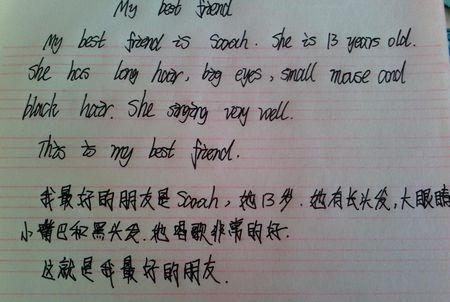 My best friend
My best friend is Sarah. She is 13 years old.
She has long hair, big eyes, small mouse and
black hair. She singing very well.
This is my best friend.
我最好的朋友是Sarah, 她13岁. 她有长头发,大眼睛
小嘴巴和黑头发. 她唱歌非常的好.
这就是我最好的朋友.